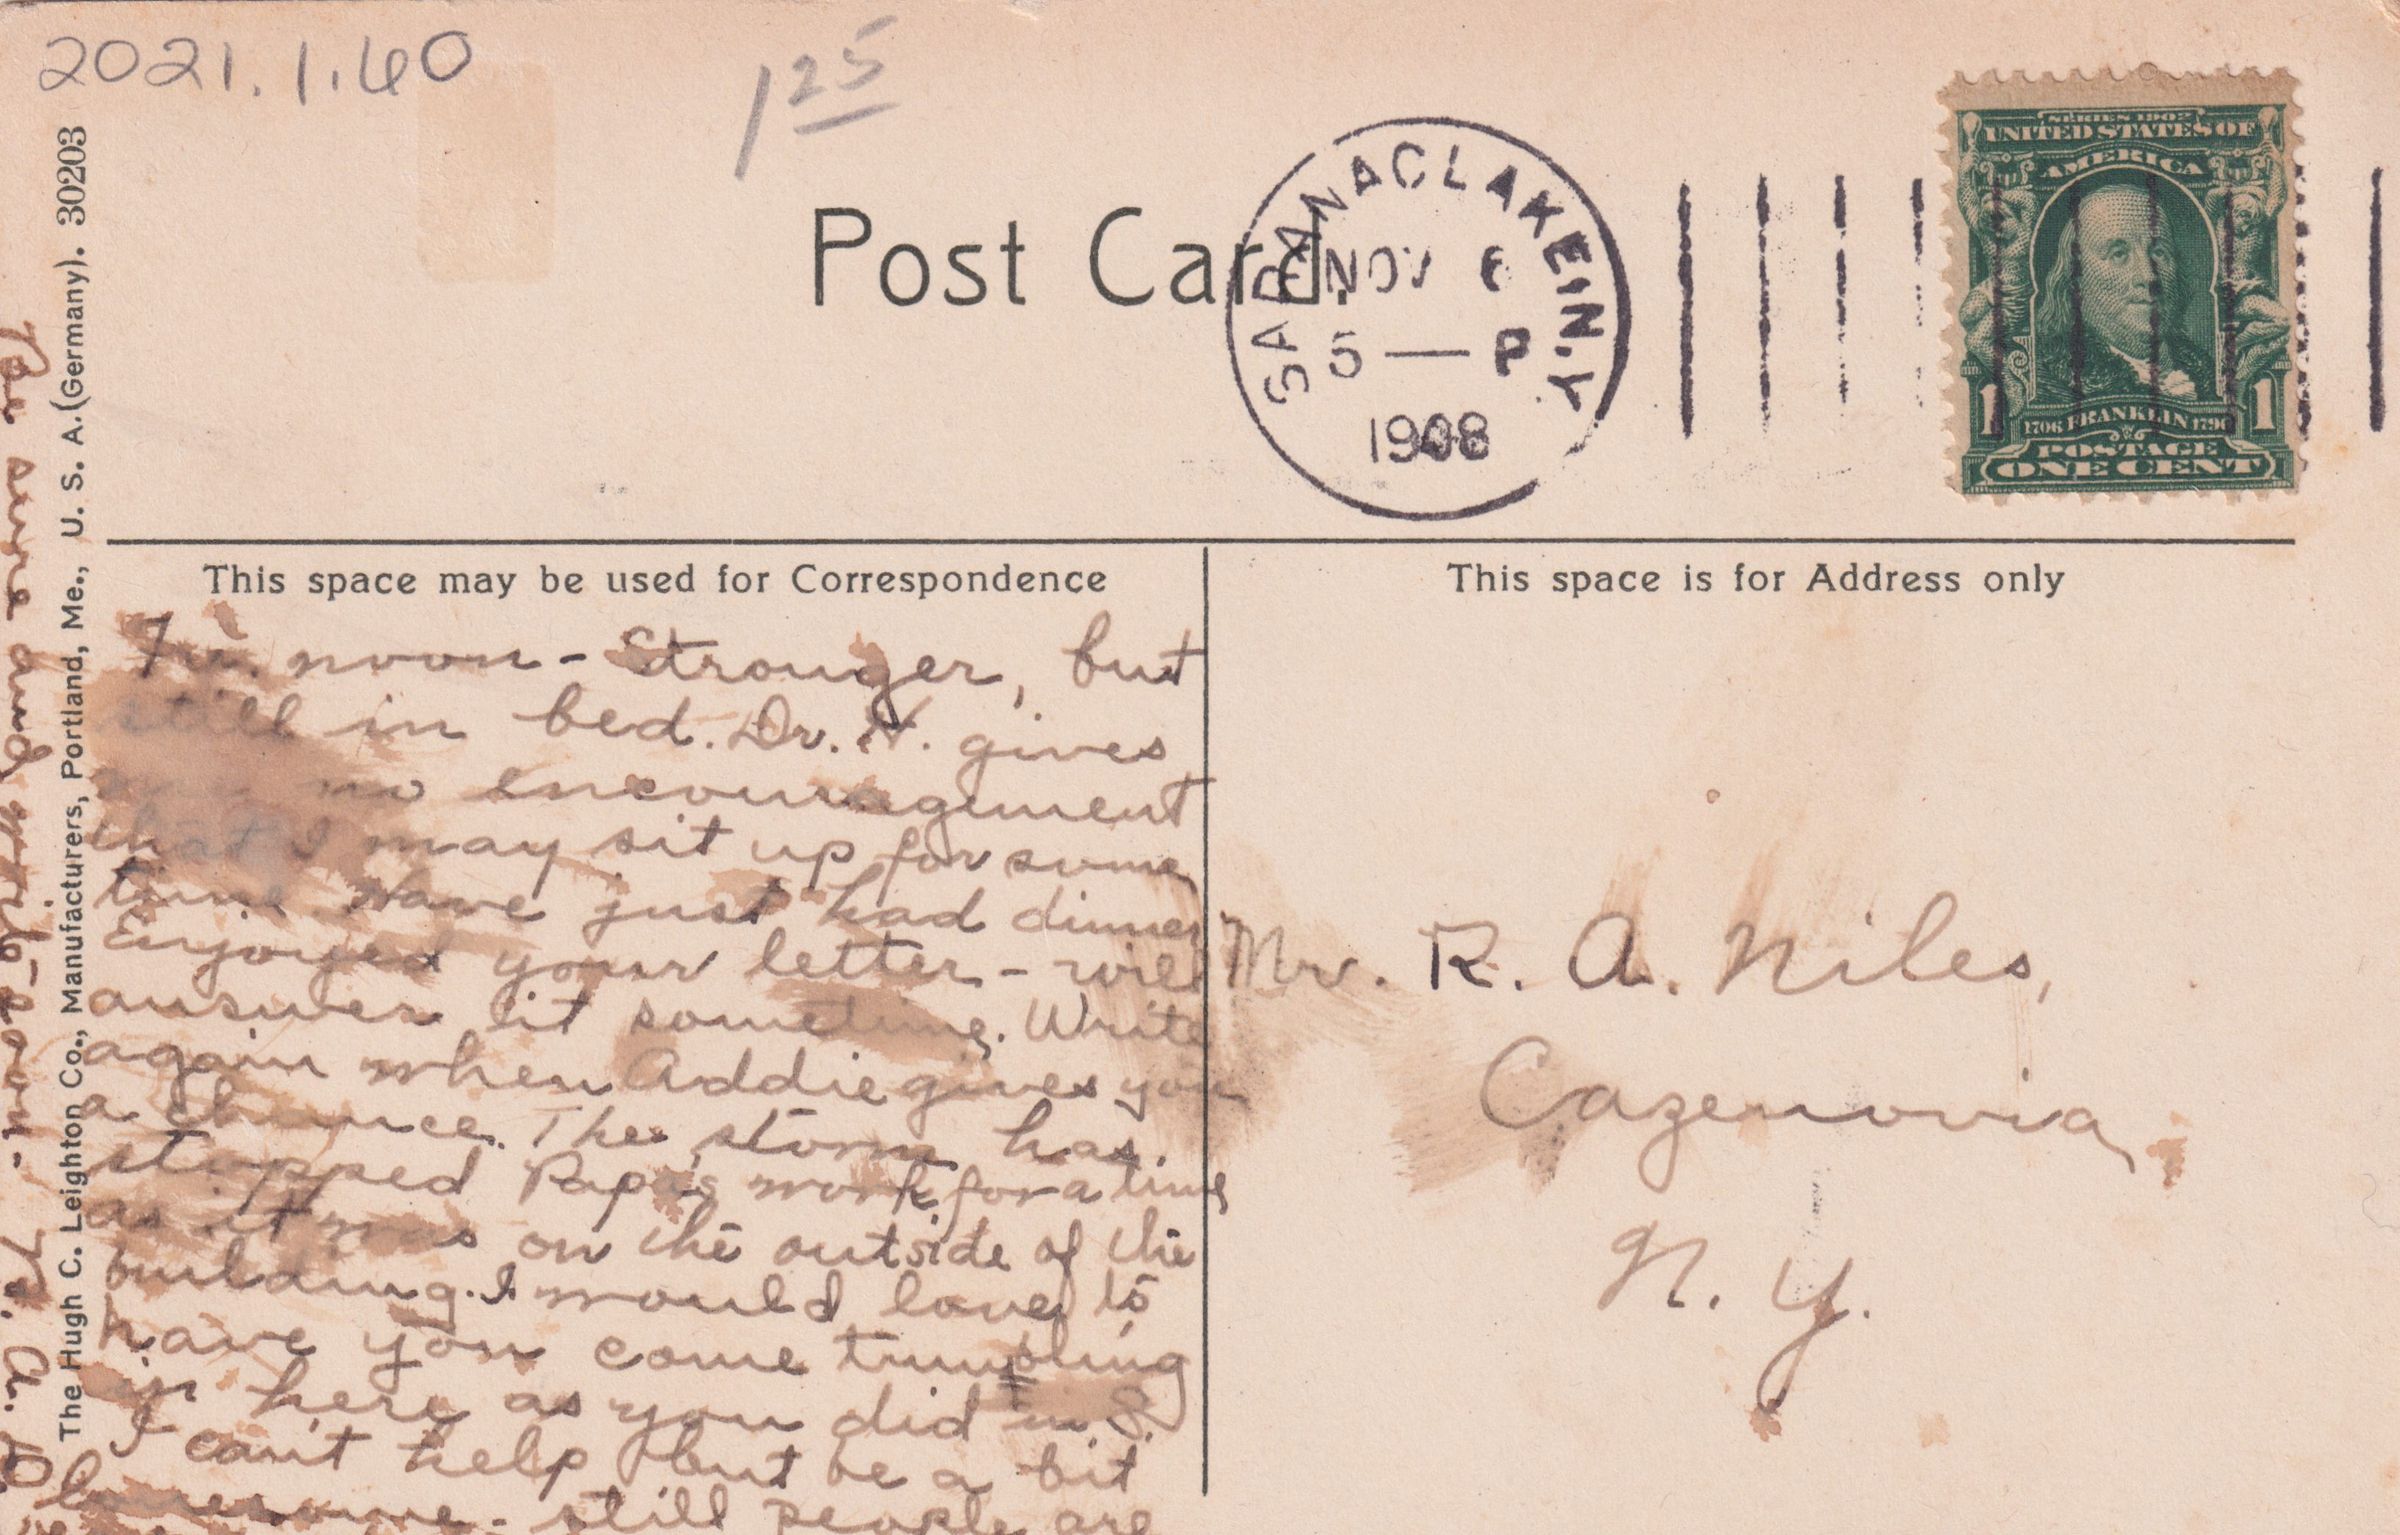 2021.1.40
1 25
Post Card.
SARANAC LAKE, N.Y.
NOV 6
5 — P
1908
SERIES 1902
UNITED STATES OF
AMERICA
1 1
1706 FRANKLIN 1790
POSTAGE
ONE CENT
This space may be used for Correspondence
This space is for Address only
Fri. noon - Stronger, but
still in bed. Dr. N. gives
me no encouragement
that I may sit up for some
time. Have just had dinner
Enjoyed your letter - will
answer it sometime. Write
again when Addie gives you
a chance. The storm has
stopped Papa's work for a time
as it was on the outside of the
building. I would love to
have you come tumbling
in here as you did in S.
I can't help but be a bit
lonesome - still people are
Be sure and write soon - R. A.
Mr. R. A. Niles,
Cazenovia,
N. Y.
The Hugh C. Leighton Co., Manufacturers, Portland, Me., U. S. A. (Germany). 30203